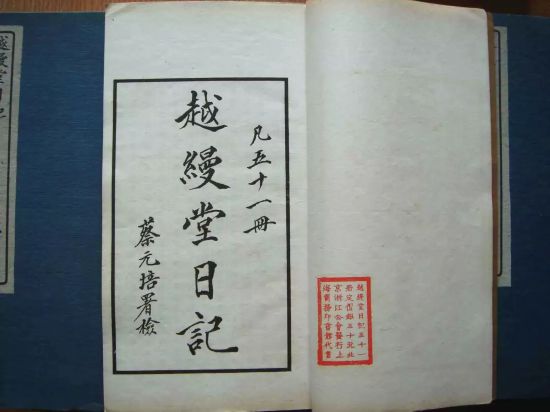 凡五十一冊
越縵堂日記
蔡元培署檢
越縵堂日記五十一
定價銀五十北
京浙江公會發行上
海商務印書館代售
越縵堂日記